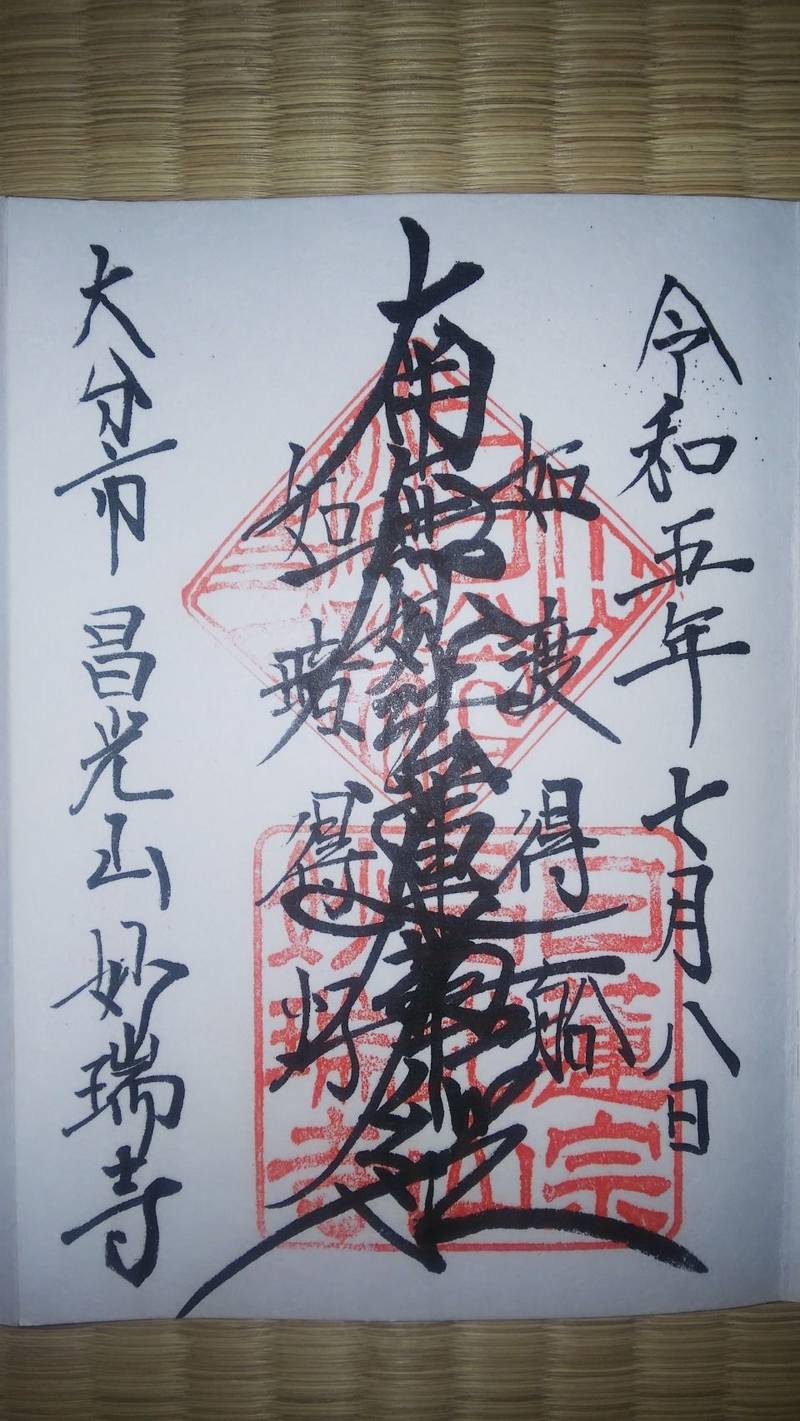 令和五年七月八日
如渡得船
南無妙法蓮華経
如暗得灯
大分市 昌光山 妙瑞寺
日蓮宗
昌光山
妙瑞寺